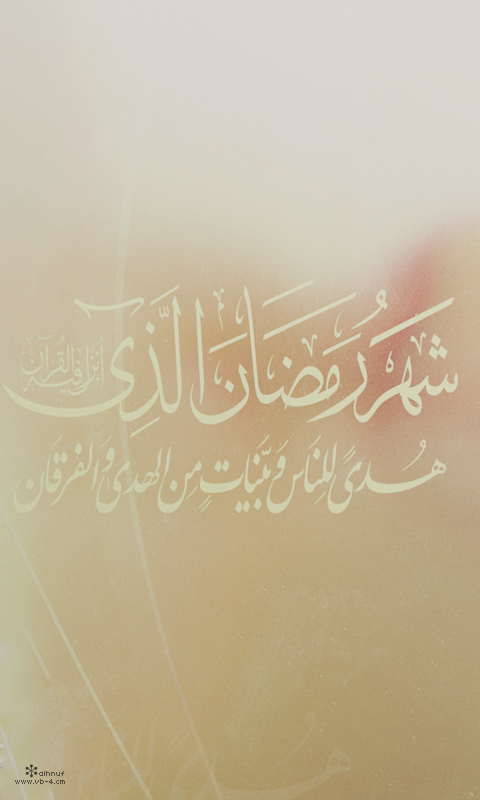 شَهرُ رَمَضَانَ الَّذِي أُنزِلَ فِيهِ القُرآن
هُدىً لِلنَاسِ وَبَيِّنَاتٍ مِن الهدى وَالفرقَان
alhnuf
www.vb-4.cm